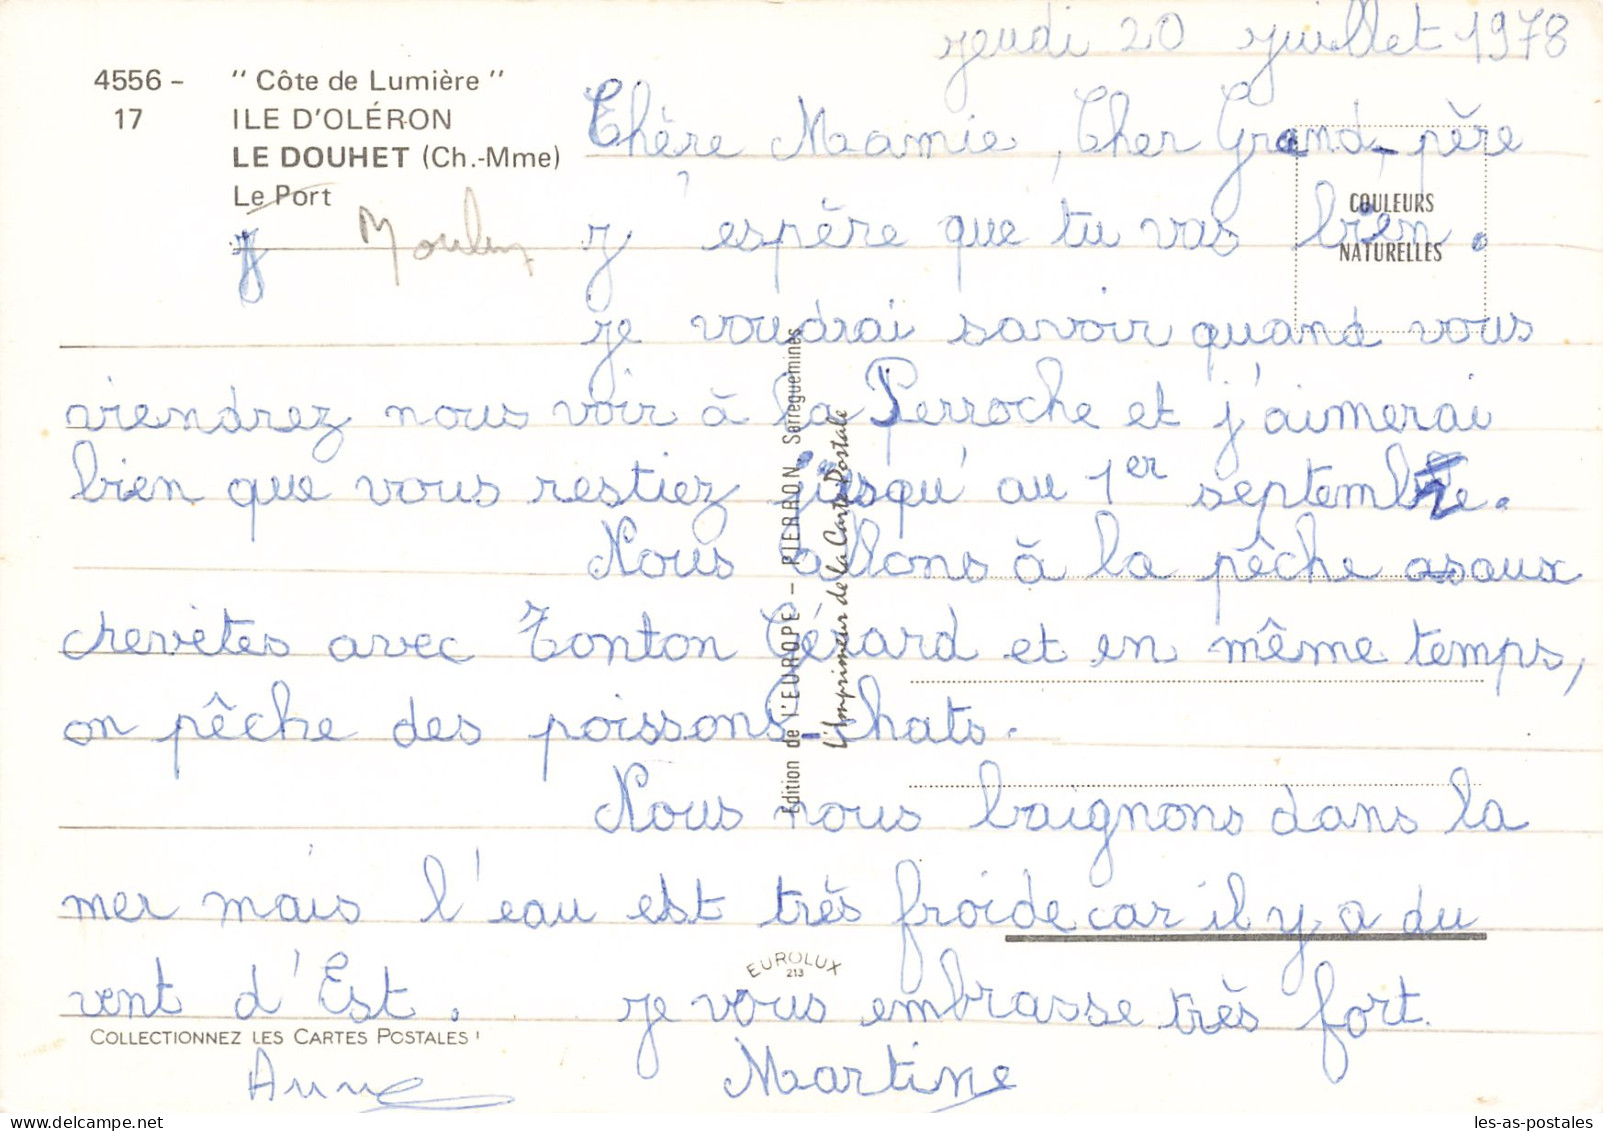 jeudi 20 juillet 1978
4556 - " Côte de Lumière "
17 ILE D'OLÉRON
LE DOUHET (Ch.-Mme)
Le Port
Chère Mamie, Cher Grand-père
COULEURS
NATURELLES
j'espère que tu vas bien.
je voudrai savoir quand vous
viendrez nous voir à la Perroche et j'aimerai
bien que vous restiez jusqu'au 1er septembre.
Nous allons à la pêche aux
crevètes avec Tonton Gérard et en même temps,
on pêche des poissons-chats.
Nous nous baignons dans la
mer mais l'eau est très froide car il y a du
vent d'Est. je vous embrasse très fort.
Martine
Anne
Edition de l'EUROPE - PIERRON Sarreguemines
L'Imprimeur de la Carte Postale
EUROLUX
213
COLLECTIONNEZ LES CARTES POSTALES !
les-as-postales